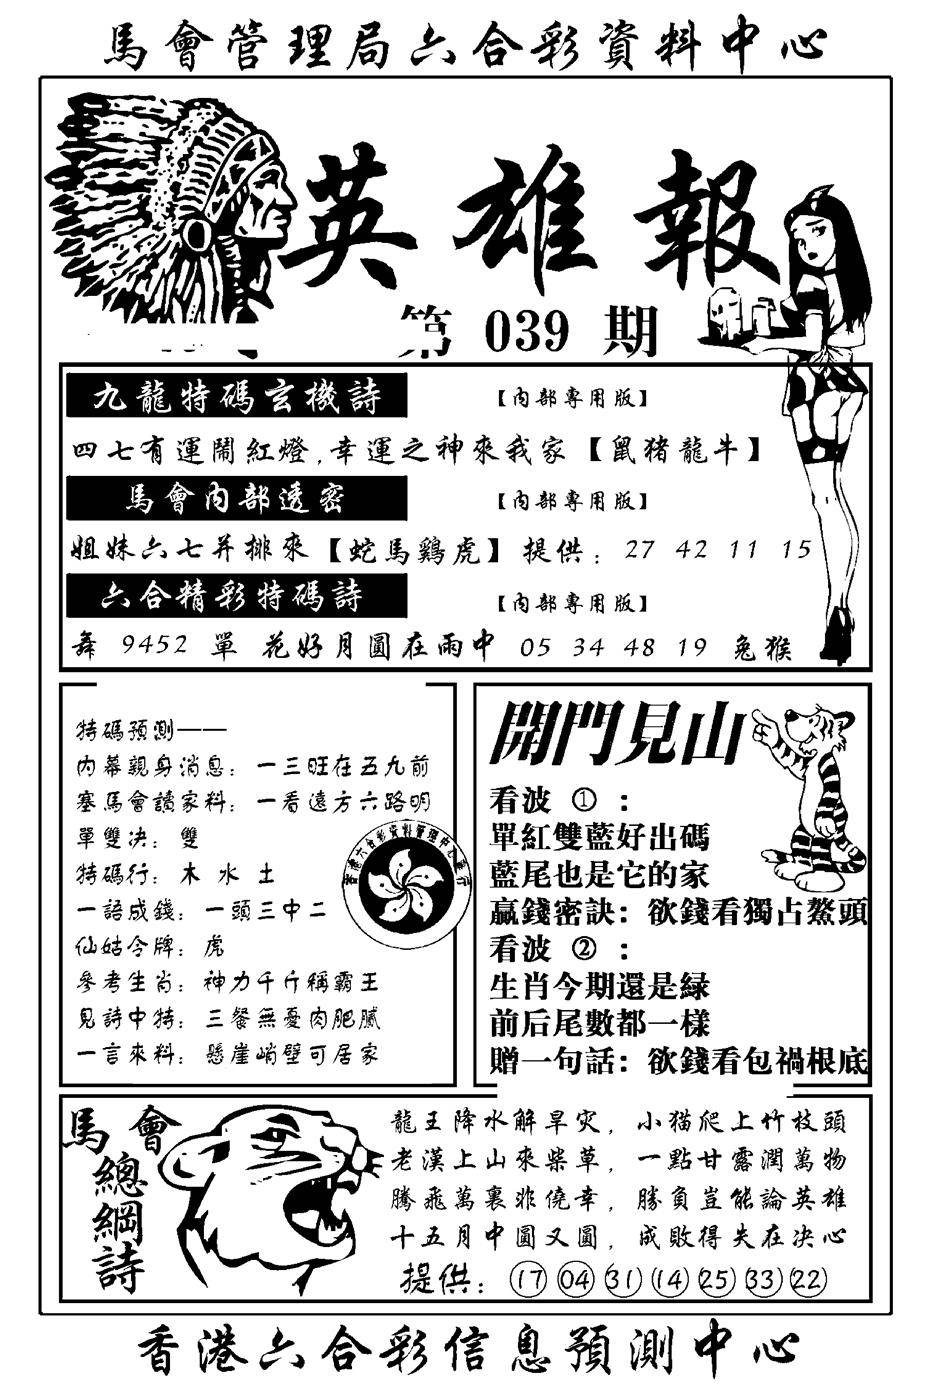 馬會管理局六合彩資料中心
英雄報
第 039 期
九龍特碼玄機詩 【內部專用版】
四七有運鬧紅燈,幸運之神來我家【鼠猪龍牛】
馬會內部透密 【內部專用版】
姐妹六七并排來【蛇馬鷄虎】提供：27 42 11 15
六合精彩特碼詩 【內部專用版】
舞 9452 單 花好月圓在雨中 05 34 48 19 兔猴
特碼預測——
內幕親身消息：一三旺在五九前
塞馬會讀家料：一看遠方六路明
單雙决：雙
特碼行：木 水 土
一語成錢：一頭三中二
仙姑令牌：虎
參考生肖：神力千斤稱霸王
見詩中特：三餐無憂肉肥膩
一言來料：懸崖峭壁可居家
開門見山
看波 ① ：
單紅雙藍好出碼
藍尾也是它的家
贏錢密訣：欲錢看獨占鰲頭
看波 ② ：
生肖今期還是緑
前后尾數都一樣
贈一句話：欲錢看包禍根底
馬會
總綱詩
龍王降水解旱灾，小猫爬上竹枝頭
老漢上山來柴草，一點甘露潤萬物
騰飛萬裏非僥幸，勝負豈能論英雄
十五月中圓又圓，成敗得失在决心
提供：17 04 31 14 25 33 22
香港六合彩信息預測中心